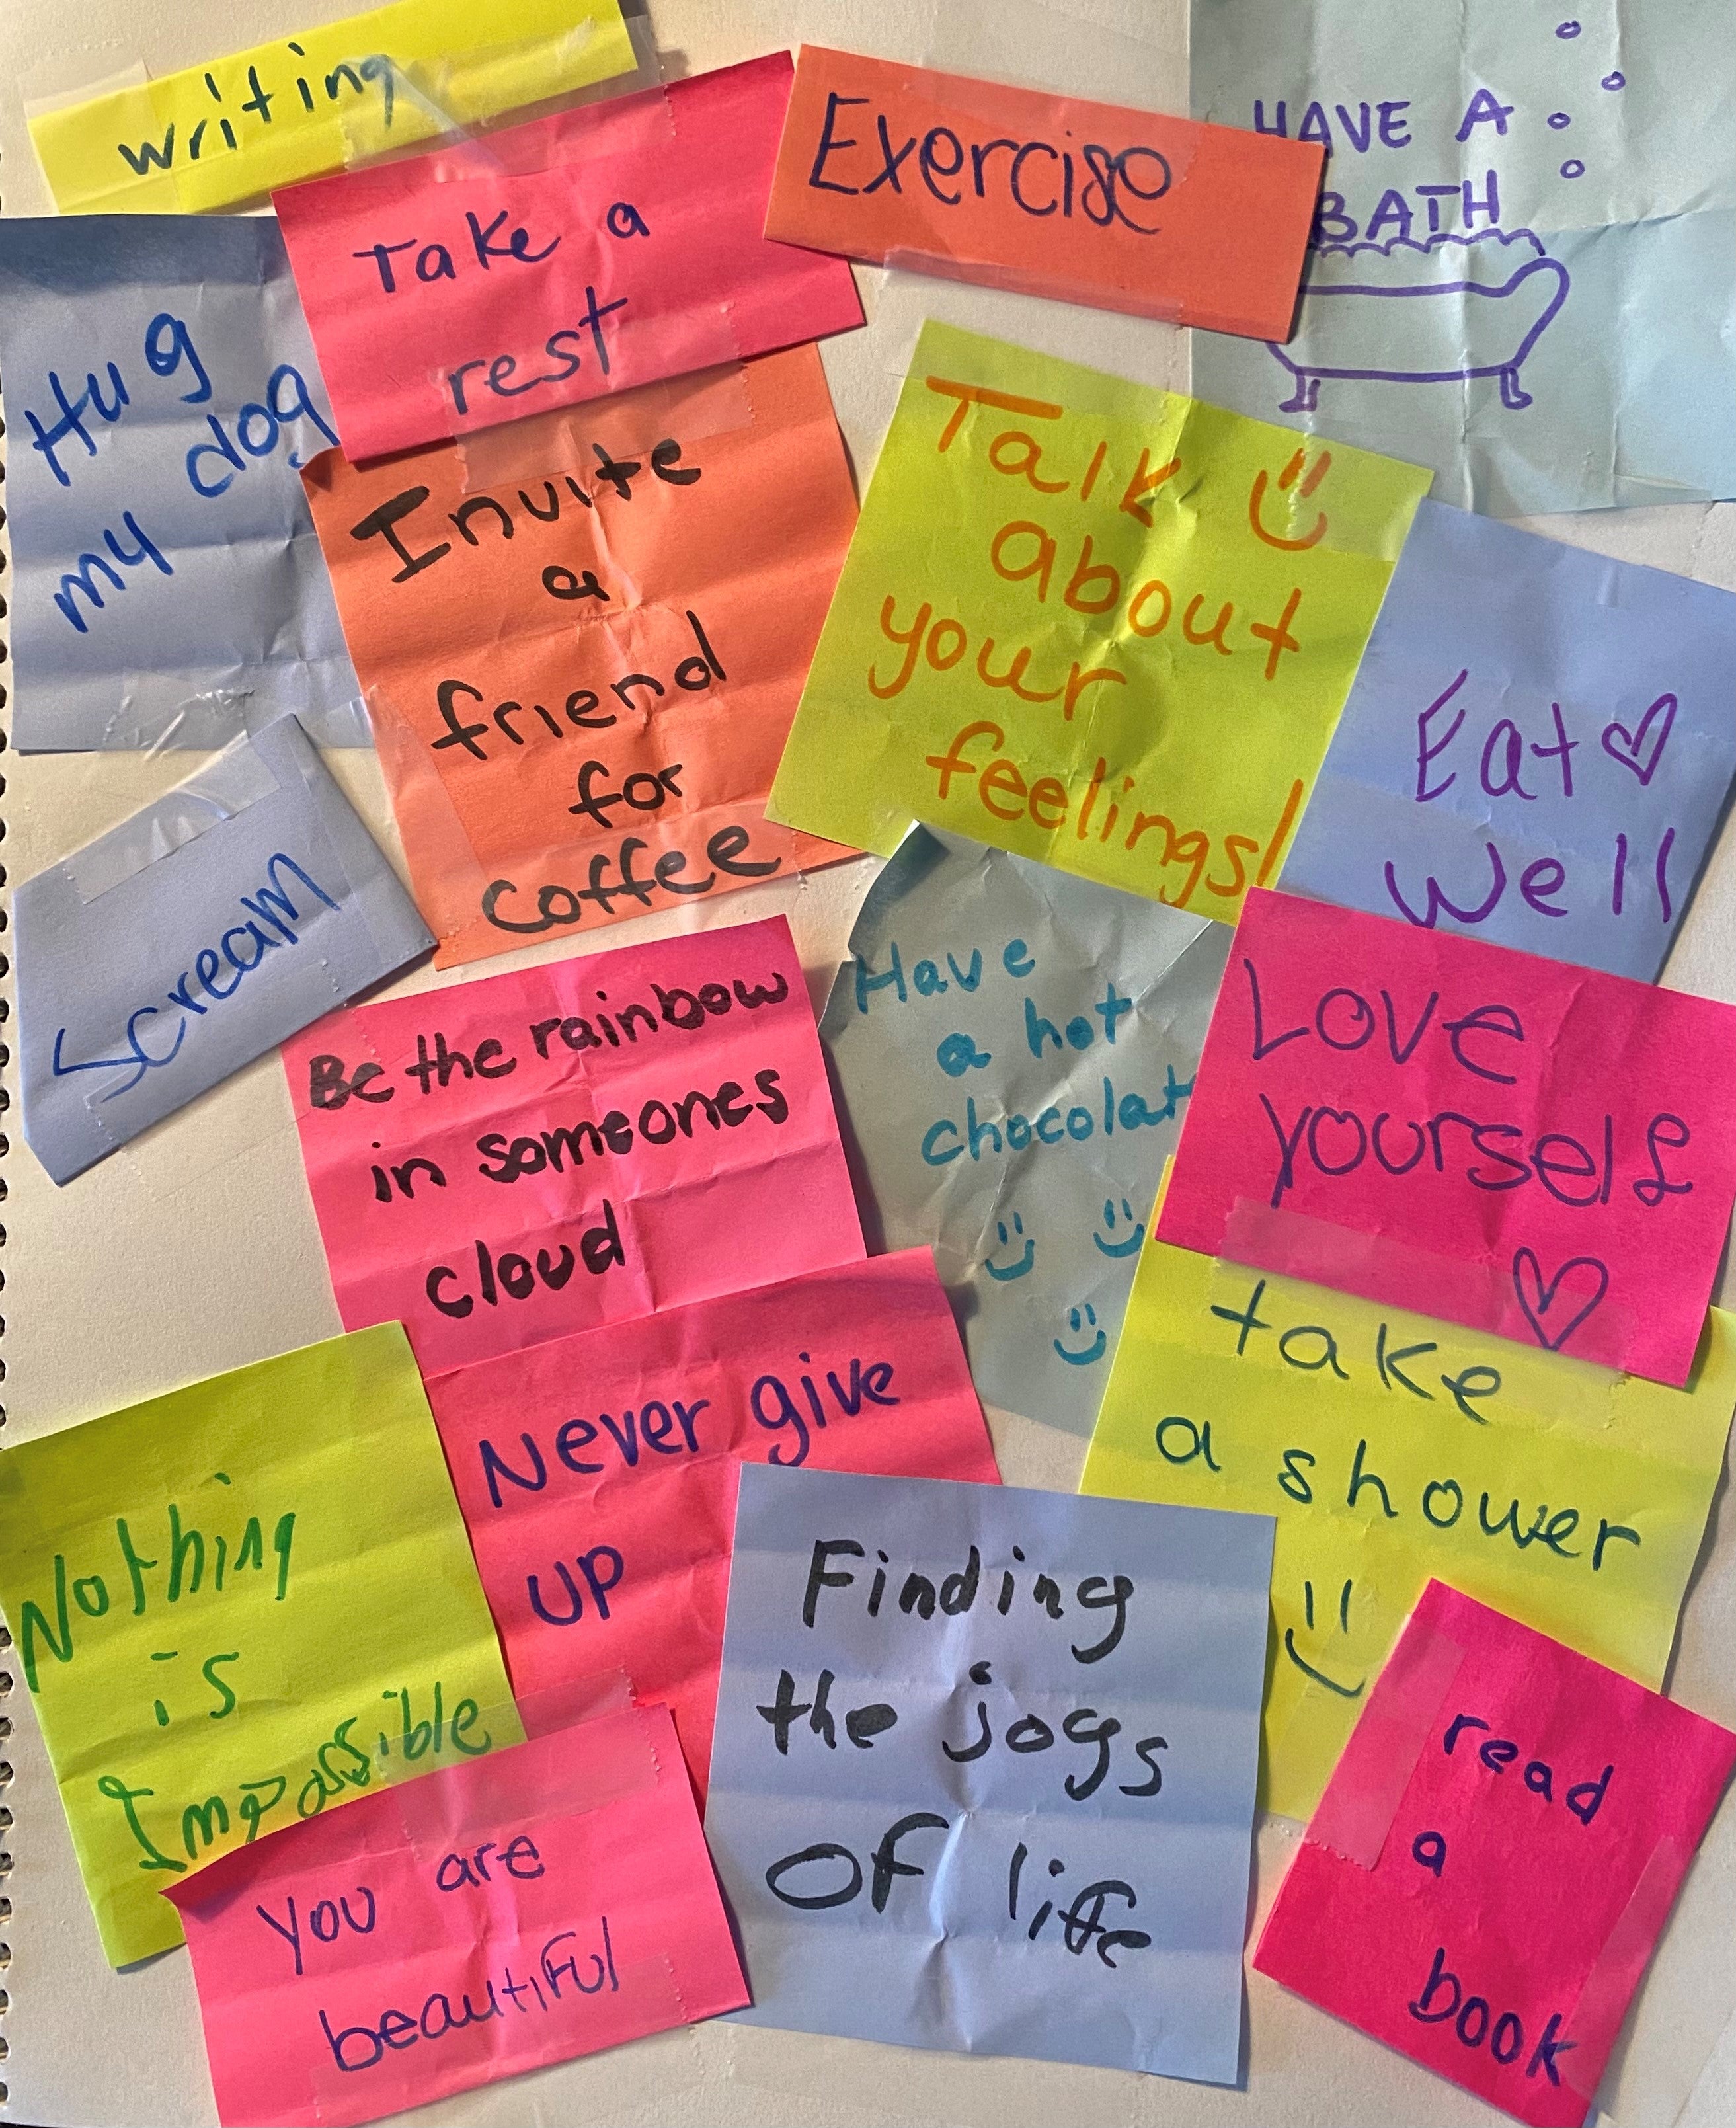 writing
Take a
rest
Exercise
HAVE A
BATH
Hug
my dog
Invite
a
friend
for
coffee
Talk
about
your
feelings!
Eat
Well
Scream
Be the rainbow
in someones
cloud
Have
a hot
chocolat
Love
yourself
take
a shower
Never give
up
Nothing
is
Impossible
Finding
the joys
of life
read
a
book
You are
beautiful